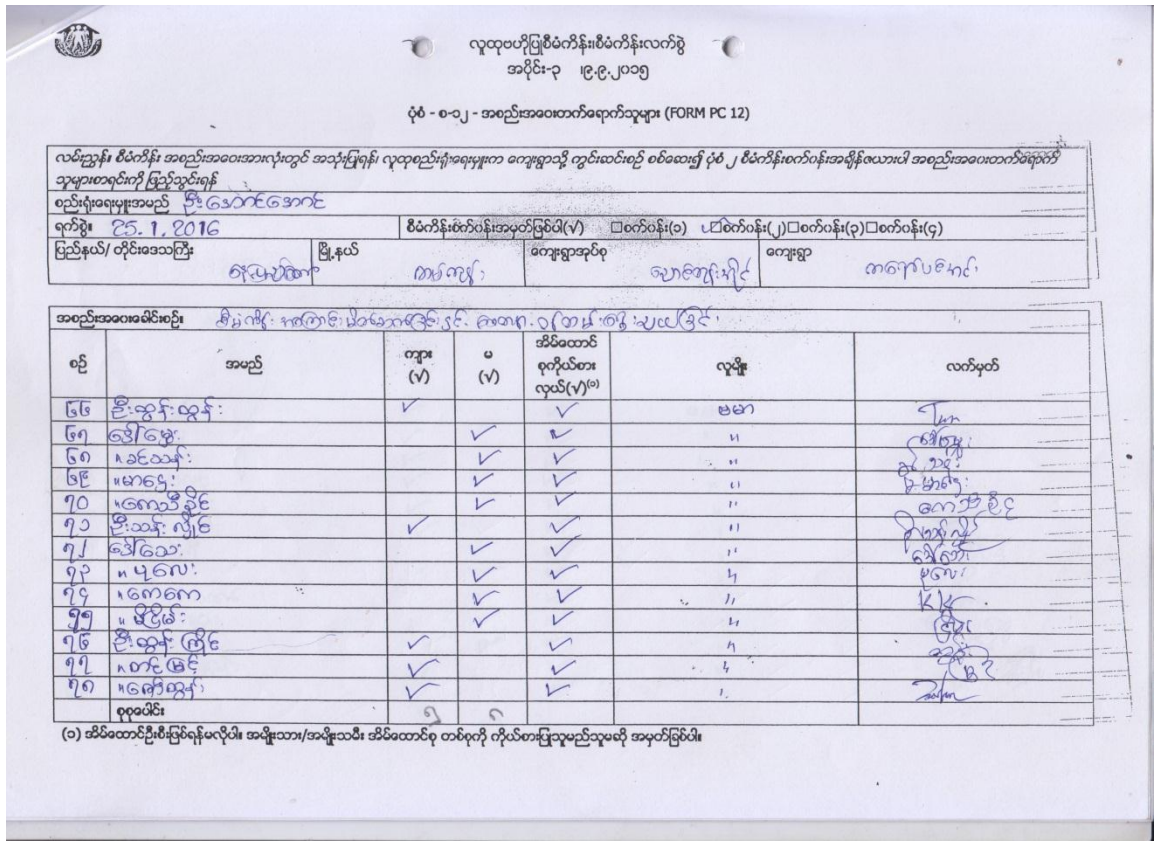 လူထုဗဟိုပြုစီမံကိန်း၊စီမံကိန်းလက်စွဲ
အပိုင်း-၃ ၊၉.၉.၂၀၁၅
ပုံစံ - စ-၁၂ - အစည်းအဝေးတက်ရောက်သူများ (FORM PC 12)
လမ်းညွှန်။ စီမံကိန်း အစည်းအဝေးအားလုံးတွင် အသုံးပြုရန်၊ လူထုစည်းရုံးရေးမှူးက ကျေးရွာသို့ ကွင်းဆင်းစဉ် စစ်ဆေး၍ ပုံစံ ၂ စီမံကိန်းစက်ပန်းအချိန်ဇယားပါ အစည်းအဝေးတက်ရောက်
သူများစာရင်းကို ဖြည့်သွင်းရန်
စည်းရုံးရေးမှူးအမည် ဦးအောင်အောင်
ရက်စွဲ။ 25.1.2016 စီမံကိန်းစက်ပန်းအမှတ်ဖြစ်ပါ(√) □စက်ပန်း(၁) ☑စက်ပန်း(၂)□စက်ပန်း(၃)□စက်ပန်း(၄)
ပြည်နယ်/ တိုင်းဒေသကြီး မြို့နယ် ကျေးရွာအုပ်စု ကျေးရွာ
အစည်းအဝေးခေါင်းစဉ်။
စဉ် အမည် ကျား (√) မ (√) အိမ်ထောင်စုကိုယ်စားလှယ်(√)⁽၁⁾ လူမျိုး လက်မှတ်
၆၆ ဦးထွန်းထွန်း ✓ ✓ ဗမာ Tun
၆၇ ဒေါ်မွှေး ✓ ✓ "
၆၈ " ခင်သန်း ✓ ✓ "
၆၉ " မာဌေး ✓ ✓ "
၇၀ " ကေသီခိုင် ✓ ✓ " ကေသီခိုင်
၇၁ ဦးသန်းလှိုင် ✓ ✓ "
၇၂ ဒေါ်သေး ✓ ✓ " ဒေါ်သေး
၇၃ " ပုလေး ✓ ✓ " ပုလေး
၇၄ " ကေကေ ✓ ✓ " KK
၇၅ " မိုငြိမ်း ✓ ✓ "
၇၆ ဦးထွန်းကြိုင် ✓ ✓ "
၇၇ " တင်မြင့် ✓ ✓ "
၇၈ " ဇော်ထွန်း ✓ ✓ "
စုစုပေါင်း ၅ ၈
(၁) အိမ်ထောင်ဦးစီးဖြစ်ရန်မလိုပါ။ အမျိုးသား/အမျိုးသမီး အိမ်ထောင်စု တစ်စုကို ကိုယ်စားပြုသူမည်သူမဆို အမှတ်ခြစ်ပါ။